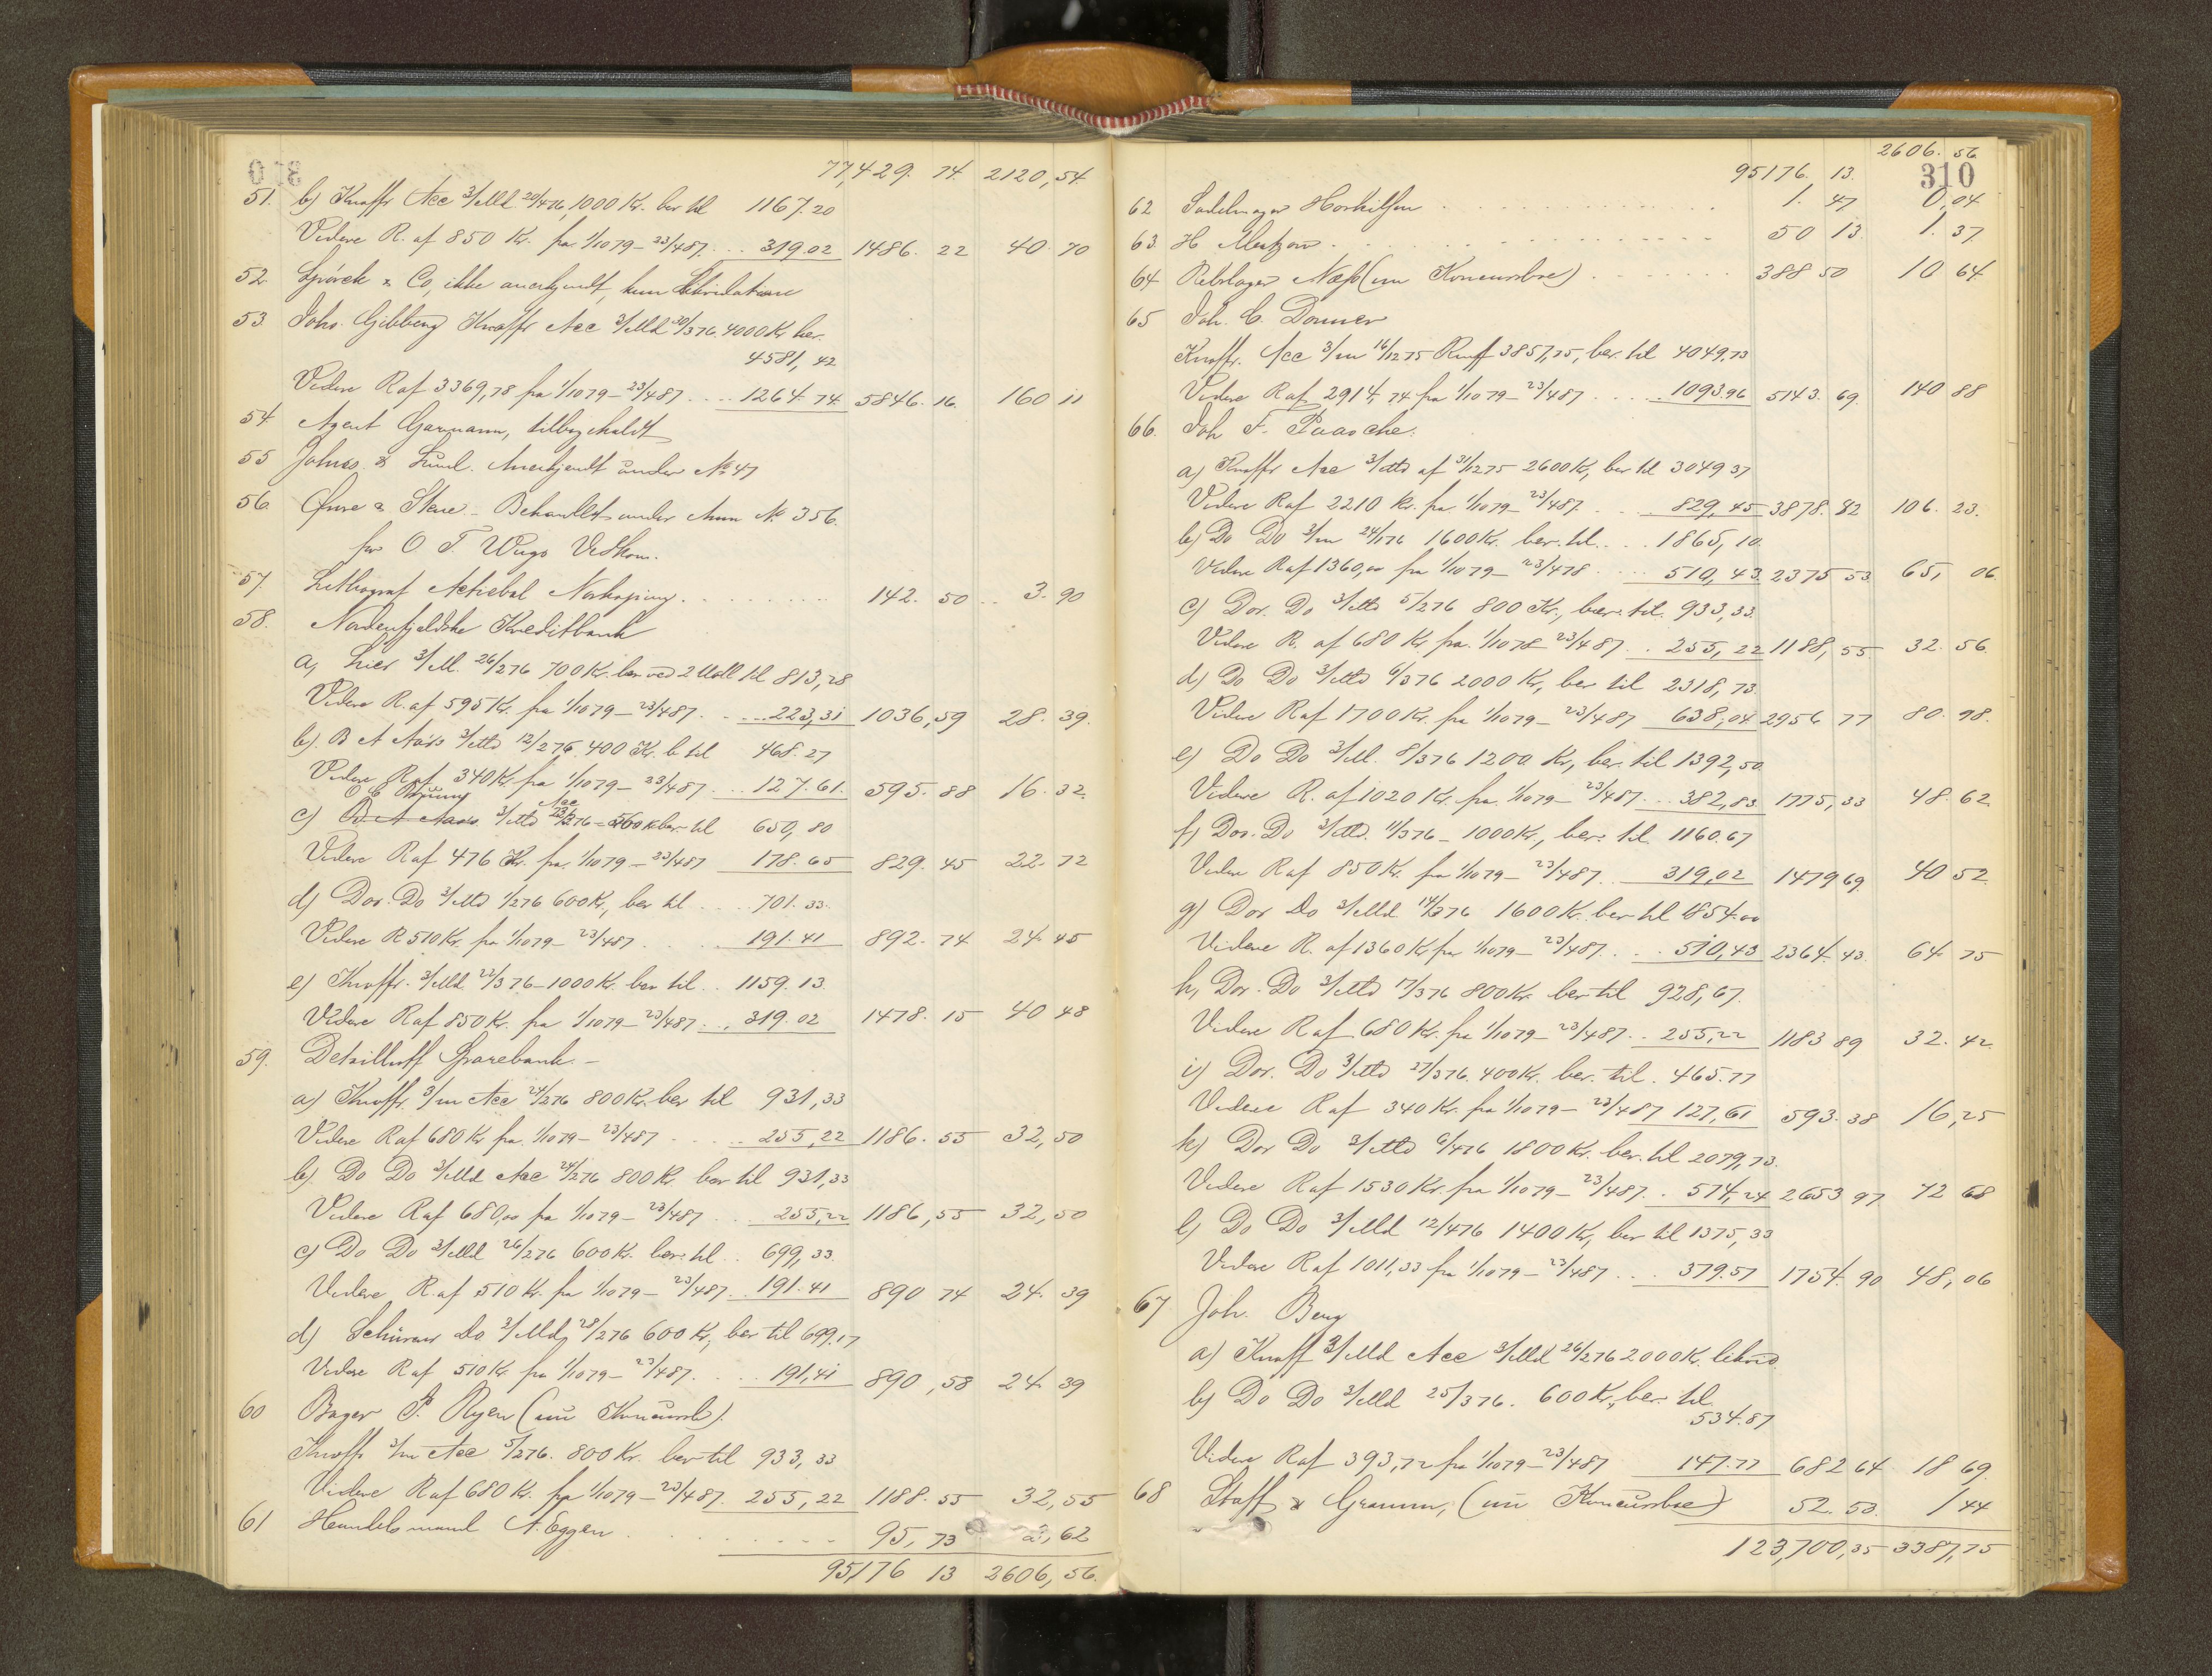 77,429. 74. 2120,54.
51. b) Knoffs Acc 3/Md 20/476, 1000 Kr. ber til 1167.20
Videre R. af 850 Kr. fra 1/1079 - 23/487 ... 319.02 1486. 22 40. 70
52. & Co, ikke anerkjendt, kun
53. Johs. Gibberg Knoffs Acc 3/Md 30/376. 4000 Kr ber.
4581, 42
Videre R af 3369,78 fra 1/1079 - 23/487 .... 1264. 74 5846. 16. 160 11
54. Agent Garmann, tilbageholdt
55 & Lund. Anerkjendt under No 47
56. & Behandlet under Anm No 356.
for O T. Wugs Vedkom.
57. Lithograf Actiebol Norkøping. . . . . . . 142. 50 .. 3. 90
58. Nordenfjeldske Kreditbank
a, Lier 3/M. 26/276 700 Kr. ber ved 2 Udll til 813,28
Videre R. af 595 Kr. fra 1/1079 - 23/487. .... 223,31 1036,59 28. 39.
b). B A Aas's 3/Mds 12/276. 400 Kr. b til 468.27
Videre R af 340 Kr. fra 1/1079 - 23/487 ... 127.61. 595. 88 16. 32.
c) 3/Mds 560 Kr ber til 650, 80
Videre R af 476 Kr. fra 1/1079 - 23/487 178.65 829. 45 22. 72
d) Dos. Do 3/Mds 1/276 600 Kr., ber til .... 701. 33.
Videre R 510 Kr. fra 1/1079 - 23/487 . . . 191.41 892. 74 24. 45
e) Knoffs. 3/Md. 22/376 - 1000 Kr. ber til .. 1159. 13.
Videre R af 850 Kr. fra 1/1079 - 23/487 ... 319.02 1478. 15 40 48
59. Sparebank. -
a) Knoffs. 3/m Acc 24/276 800 Kr. ber til 931,33
Videre R af 680 Kr fra 1/1079 - 23/487 .... 255,22 1186. 55 32,50
b). Do Do 3/Md Acc 24/276 800 Kr. ber til 931,33
Videre R af 680,00 fra 1/1079 - 23/487 ... 255,22 1186,55 32,50
c) Do Do 3/Md 26/276 600 Kr. ber til .. 699,33.
Videre R. af 510 Kr. fra 1/1079 - 23/487 .. 191.41 890 74 24. 39
d) Do 3/Md, 28/276 600 Kr, ber til 699.17
Videre R af 510 Kr fra 1/1079 - 23/487. ... 191,41 890,58 24 39
60 Bager P. Ryen (nu Koncursb).
Knoffs 3/m Acc 5/276. 800 Kr. ber til 933, 33
Videre R af 680 Kr. fra 1/1079 - 23/487. 255, 22 1188. 55 32,55
61 Handelsmand A. Eggen . . . . . . 95, 73 2,62
95176 13 2606, 56.
310
95176. 13. 2606. 56
62 Sadelmager . . . . . . . 1. 47 0,04
63. H . . . . . . . 50 13. 1. 37.
64 Rebslager Næss (nu Koncursboe) . . . . . . 388 50 10 64
65 Joh. C. Donner
Knoffs. Acc 3/m 16/1275 3857,75, ber. til 4049.73
Videre R af 2914,74 fra 1/1079 - 23/487 .... 1093.96 5143. 69. 140 88
66. Joh F. Paasche.
a) Knoffs Acc 3/Mds af 31/1275 2600 Kr, ber til 3049 37
Videre R af 2210 Kr. fra 1/1079 - 23/487. ... 829,45 3878. 82 106. 23.
b) Do Do 3/m 24/176 1600 Kr. ber. til .... 1865, 10.
Videre R af 1360,00 fra 1/1079 - 23/478 .... 510,43. 2375 53. 65, 06
c) Dos. Do 3/Mds 5/276 800 Kr., ber. til. 933,33.
Videre R. af 680 Kr fra. 1/1078 23/487 .. 255, 22 1188, 55. 32. 56.
d) Do Do 3/Mds 6/376 2000 Kr, ber til 2318, 73.
Videre R af 1700 Kr. fra 1/1079 - 23/487 638,04 2956 77 80. 98.
e) Do Do 3/M. 8/376 1200 Kr, ber. til 1392,50
Videre R. af 1020 Kr. fra 1/1079 - 23/487 ... 382,83. 1775,33 48. 62
f) Dos. Do 3/Md. 11/376 - 1000 Kr., ber. til 1160.67
Videre R af 850 Kr. fra 1/1079 - 23/487 ... 319,02 1479 69. 40 52.
g) Dos Do 3/Md 14/376 1600 Kr. ber til 1854.00
Videre R. af 1360 Kr fra 1/1079 - 23/487 .... 510,43 2364. 43. 64 75
h, Dos. Do 3/Mds 17/376 800 Kr. ber til 928,67.
Videre R af 680 Kr. fra 1/1079 - 23/487 .. 255,22 1183 89 32. 42.
i) Dos. Do 3/Mds 27/376. 400 Kr. ber. til. 465.77
Videre R af 340 Kr. fra 1/1079 - 23/487 127,61 593. 38 16,25
k) Dos Do 3/Mds 6/476 1800 Kr. ber. til 2079,73.
Videre R af 1530 Kr. fra 1/1079 - 23/487. . 574,24 2653 97. 72 68
l) Do Do 3/Md 12/476 1400 Kr, ber til 1375,33
Videre R af 1011,33 fra 1/1079 - 23/487 ... 379.57 1754. 90 48,06
67 Joh. Berg
a) Knoff 3/Md Acc 3/Md 26/276 2000 Kr.
b) Do Do 3/Md 25/376. 600 Kr, ber. til
534.87
Videre R af 393,72 fra 1/1079 - 23/487 147.77 682 64 18 69.
68 & Gramm, (nu Koncursboe) 52. 53. 1 44
123,700,35 3387,75